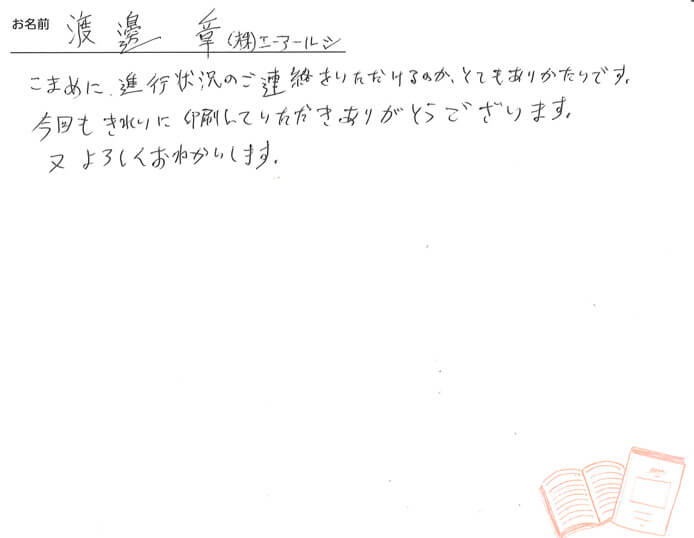 お名前 渡邊 章 (株)エアールシ
こまめに、進行状況のご連絡をいただけるのが、とてもありがたいです。
今回もきれいに印刷していただき、ありがとうございます。
又よろしくおねがいします。